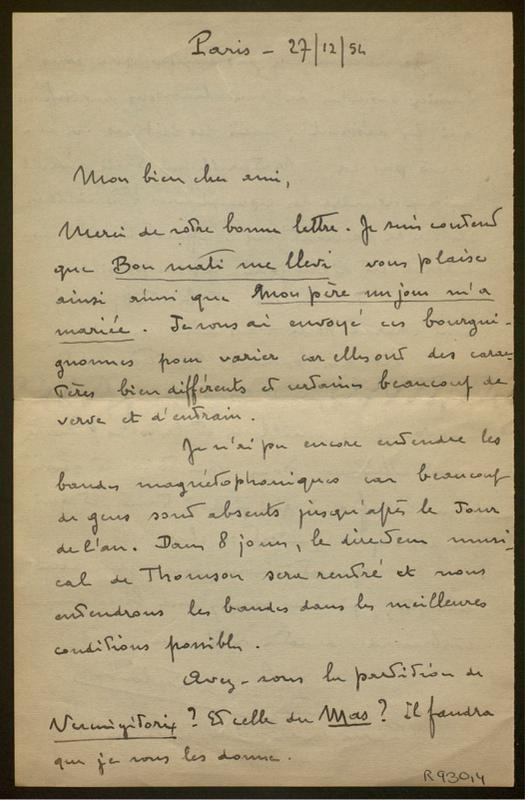 Paris – 27/12/54
Mon bien cher ami,
Merci de votre bonne lettre. Je suis content
que Bon mati me llevi vous plaise
ainsi ainsi que Mon père un jour m'a
mariée. Je vous ai envoyé ces bourgui-
gnonnes pour varier car elles ont des carac-
tères bien différents et certaines beaucoup de
verve et d'entrain.
Je n'ai pu encore entendre les
bandes magnétophoniques car beaucoup
de gens sont absents jusqu'après le Jour
de l'an. Dans 8 jours, le directeur musi-
cal de Thomson sera rentré et nous
entendrons les bandes dans les meilleures
conditions possibles.
Avez-vous la partition de
Vercingétorix ? Et celle du Mas ? Il faudra
que je vous les donne.
R 930,4